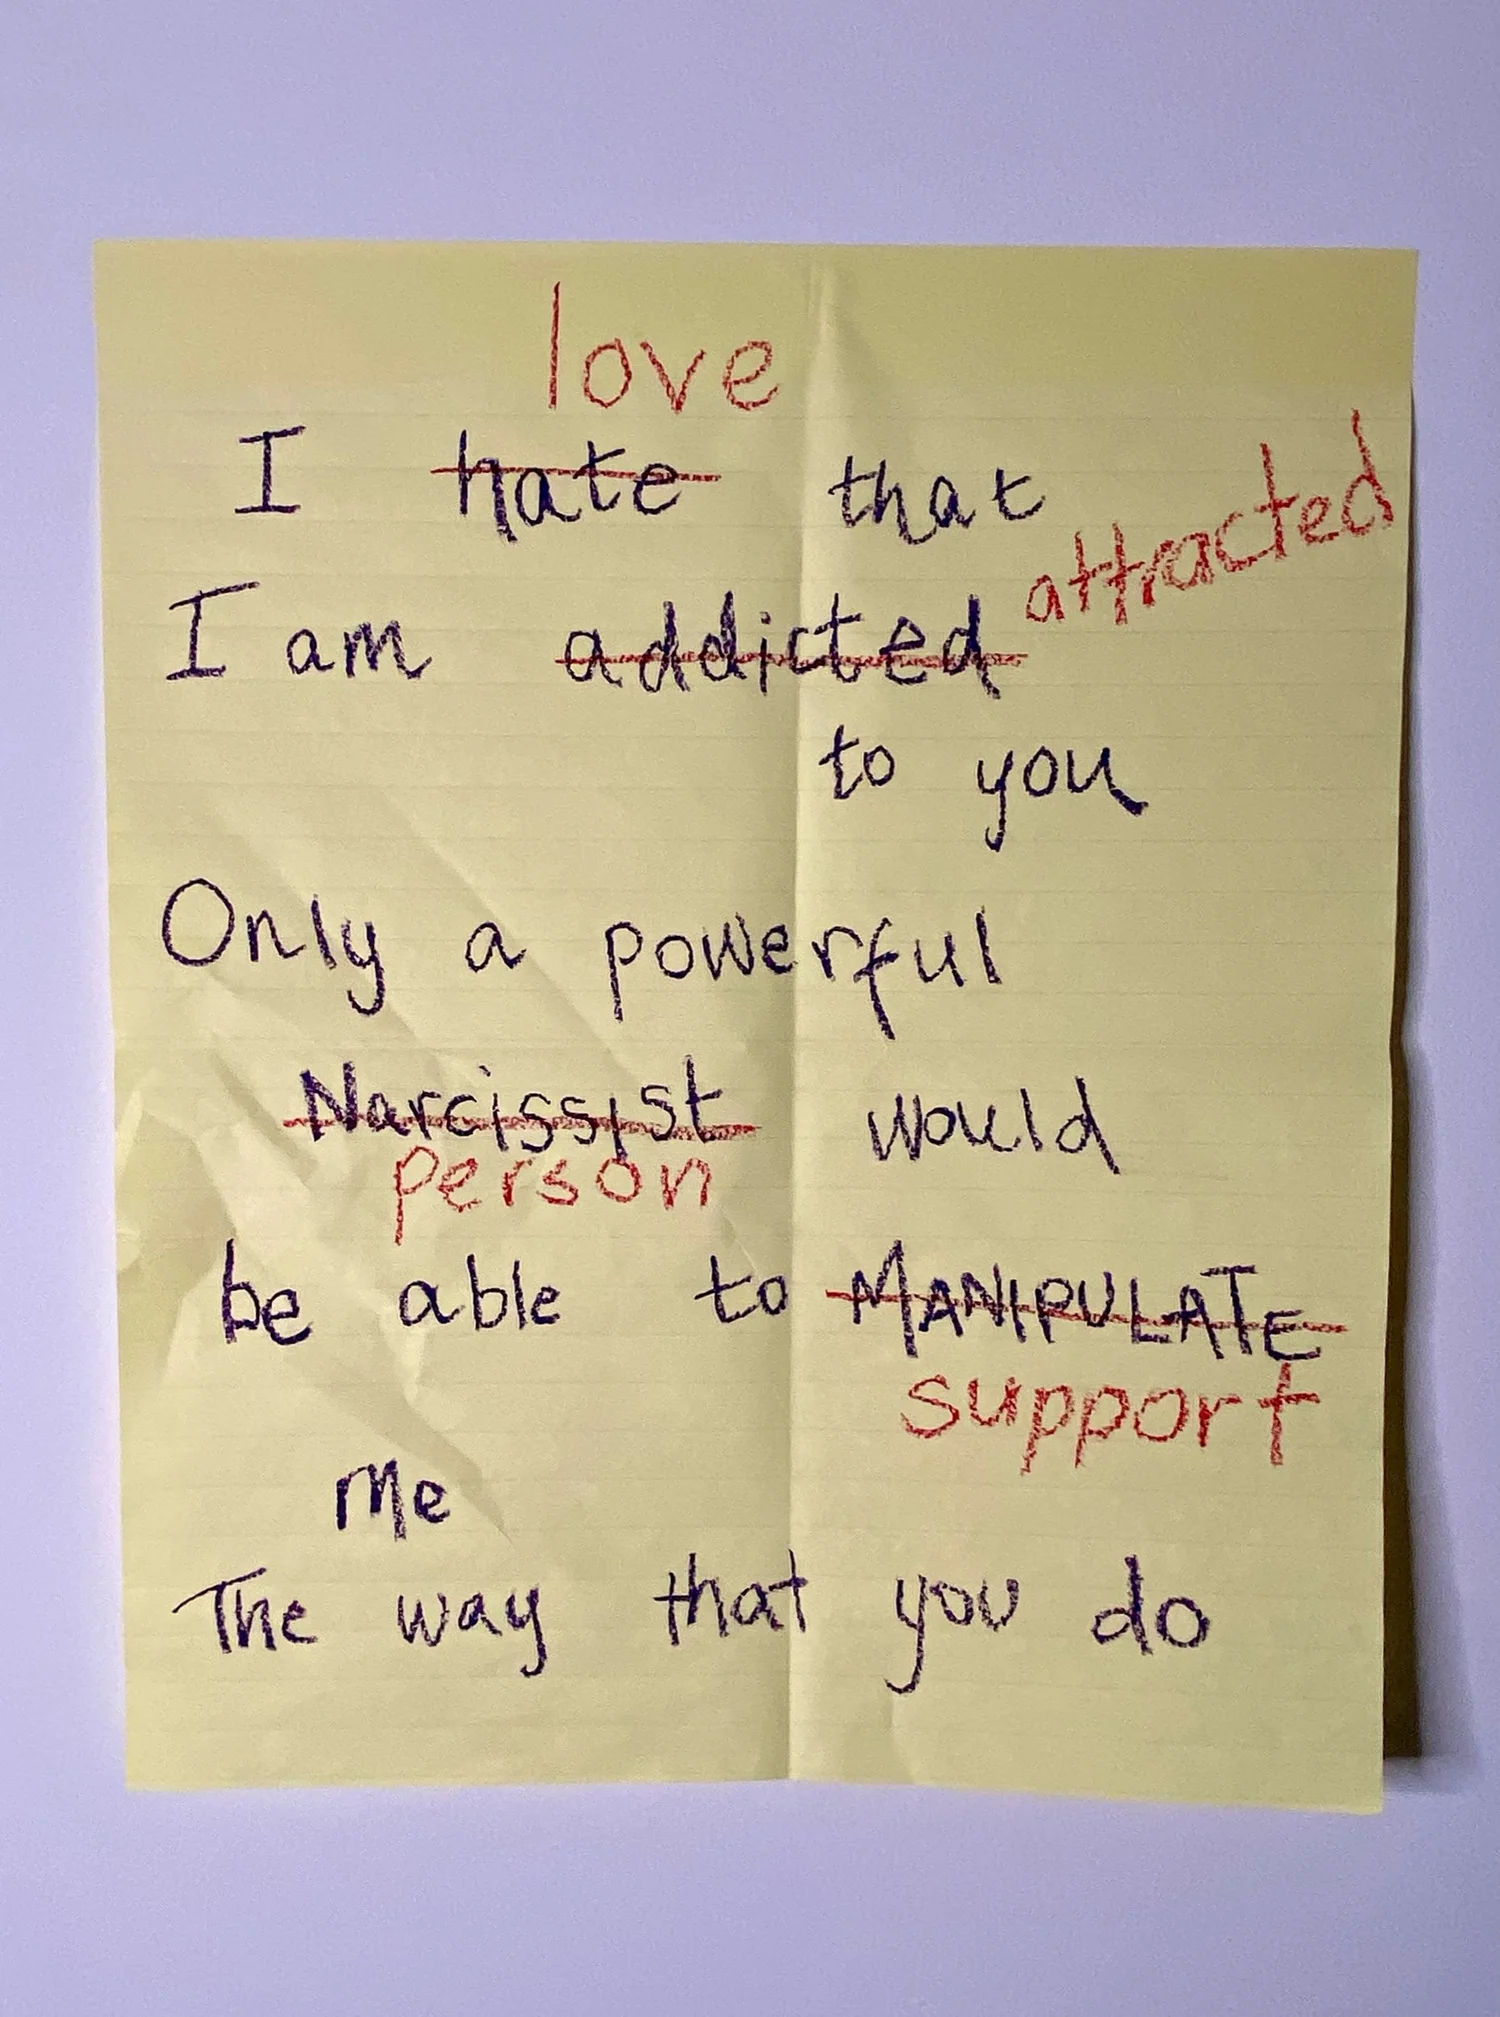 love
I hate that
I am addicted attracted
to you
Only a powerful
Narcissist would
person
be able to MANIPULATE
support
Me
The way that you do